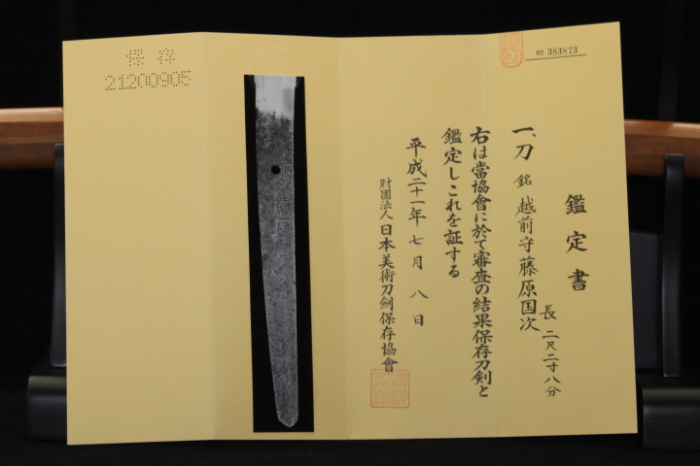 保存
21200905
No 383873
鑑定書
一、刀 銘 越前守藤原国次
長 二尺二寸八分
右は當協會に於て審査の結果保存刀剣と
鑑定しこれを証する
平成二十一年七月八日
財團法人 日本美術刀劍保存協會